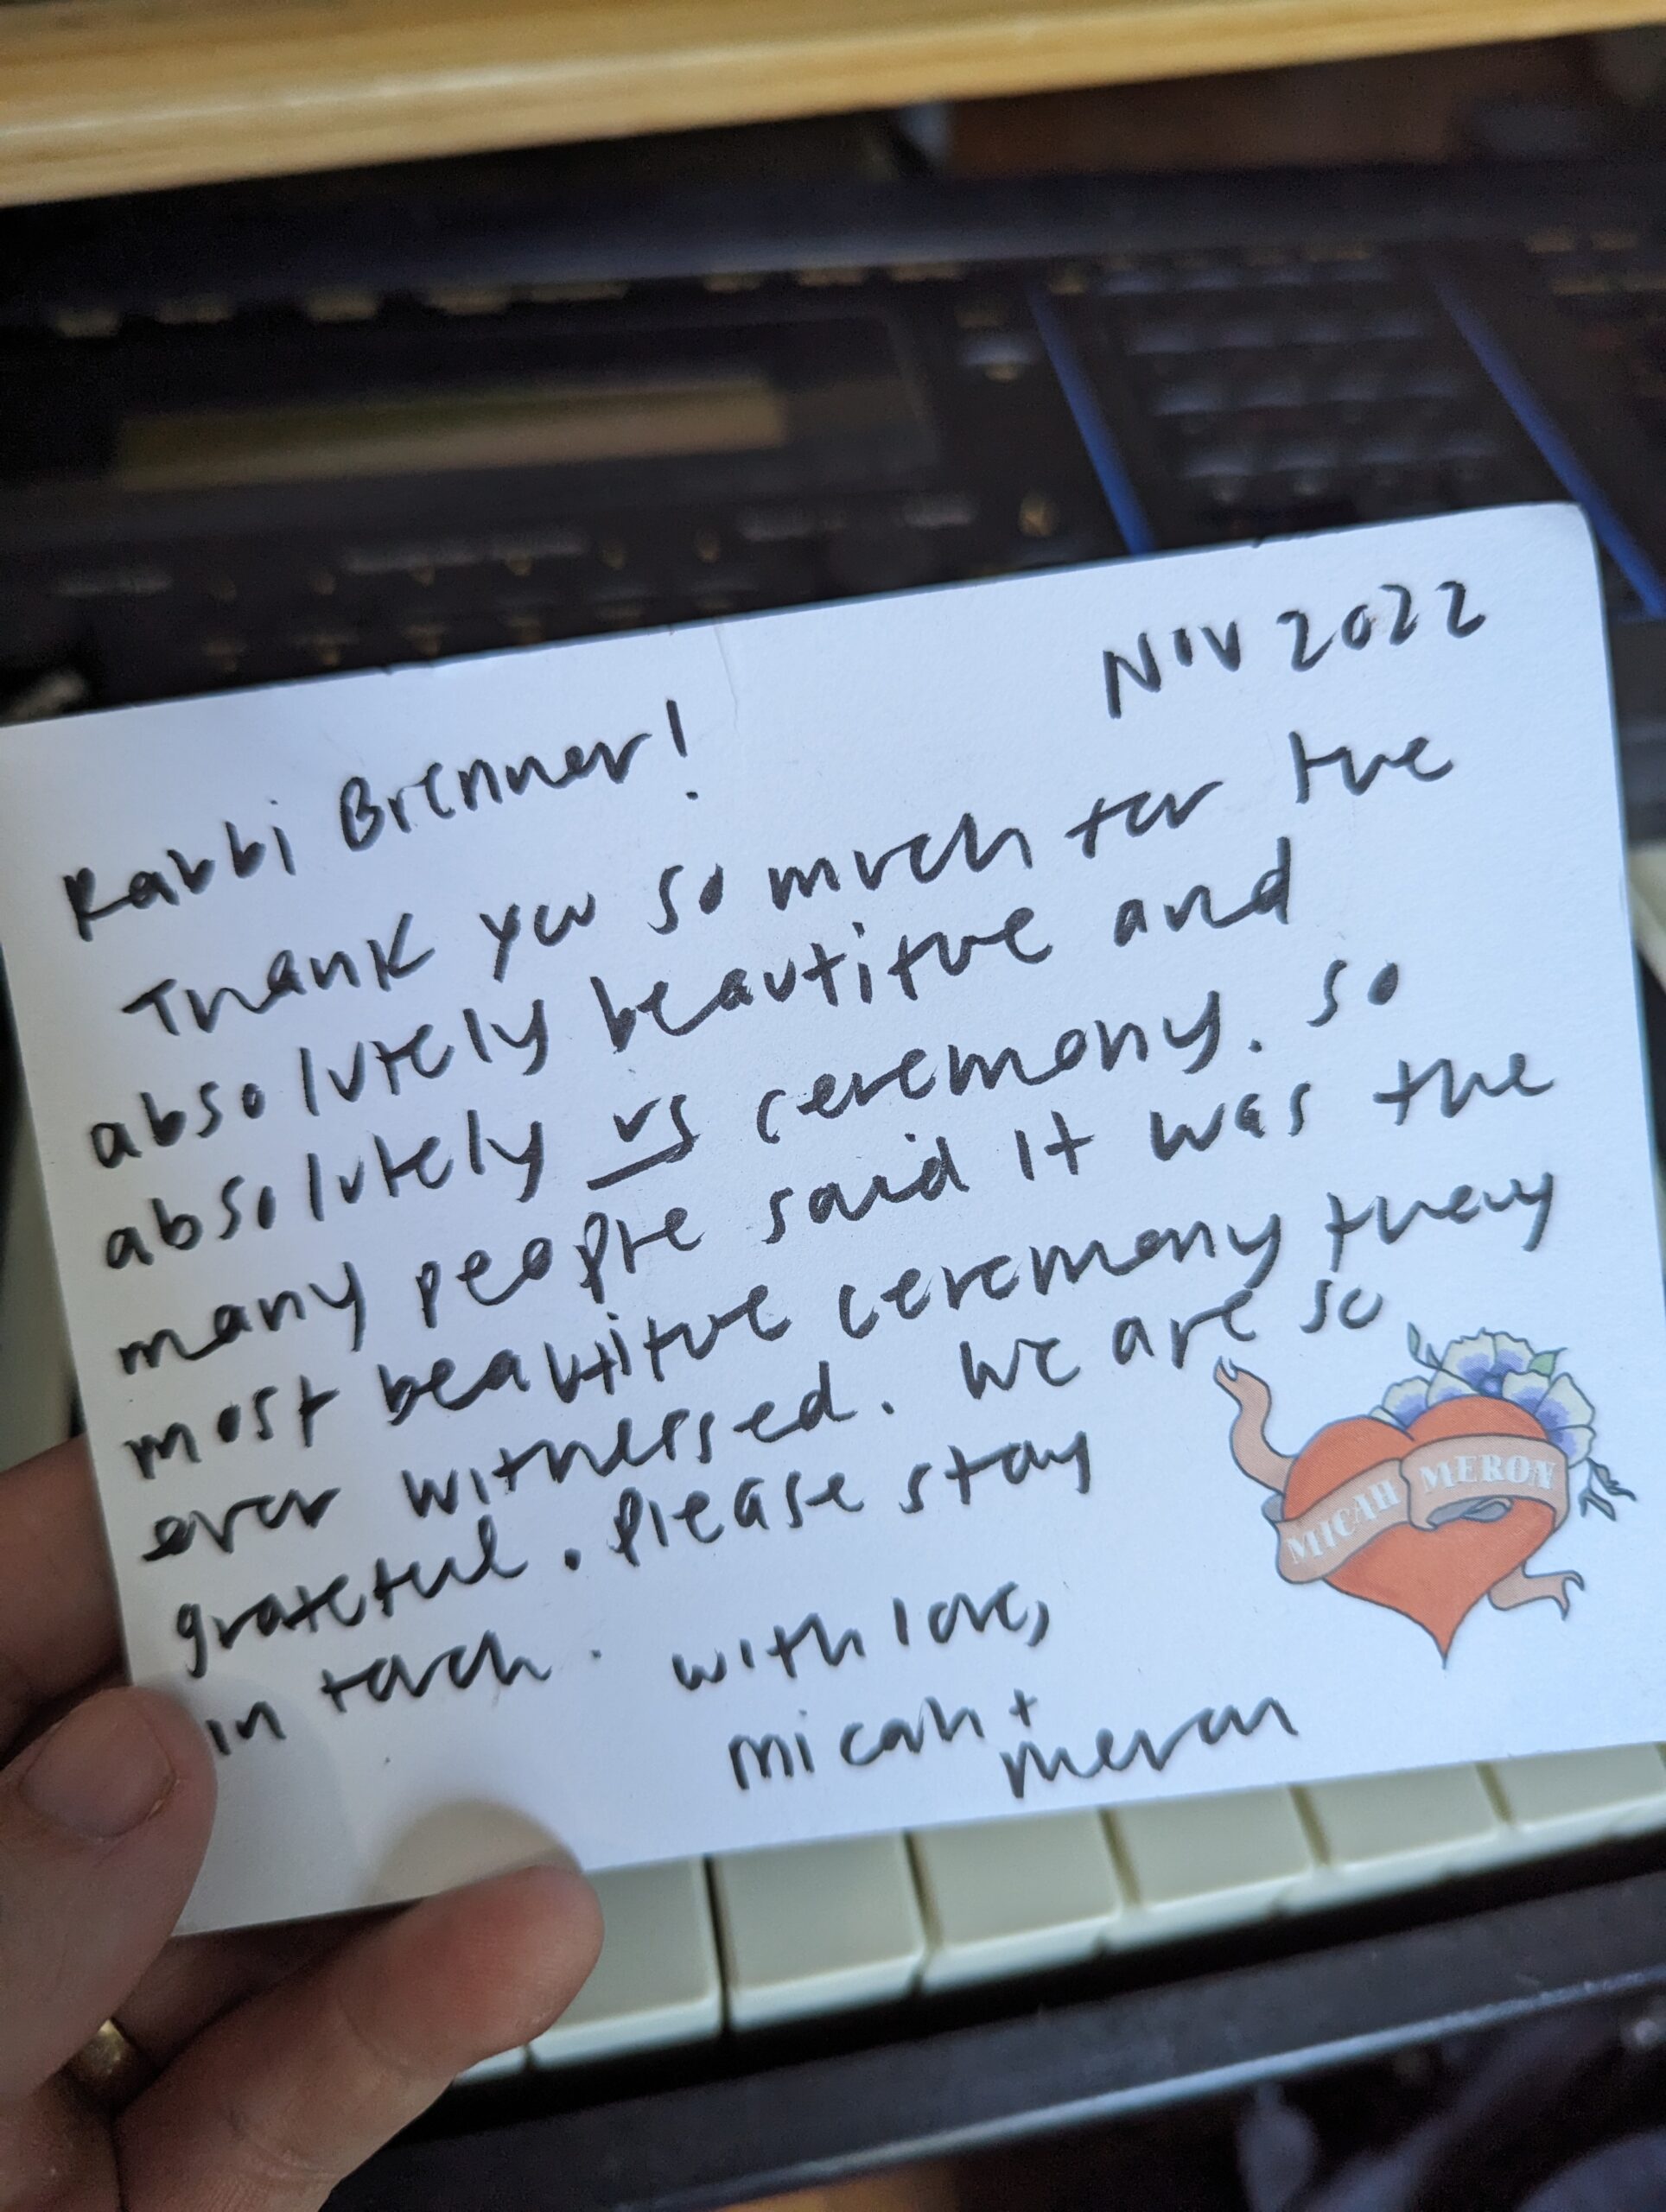 Nov 2022
Rabbi Brenner!
Thank you so much for the
absolutely beautiful and
absolutely us ceremony. So
many people said it was the
most beautiful ceremony they
ever witnessed. We are so
grateful. Please stay
in touch. With love,
Micah +
Meron
MICAH MERON